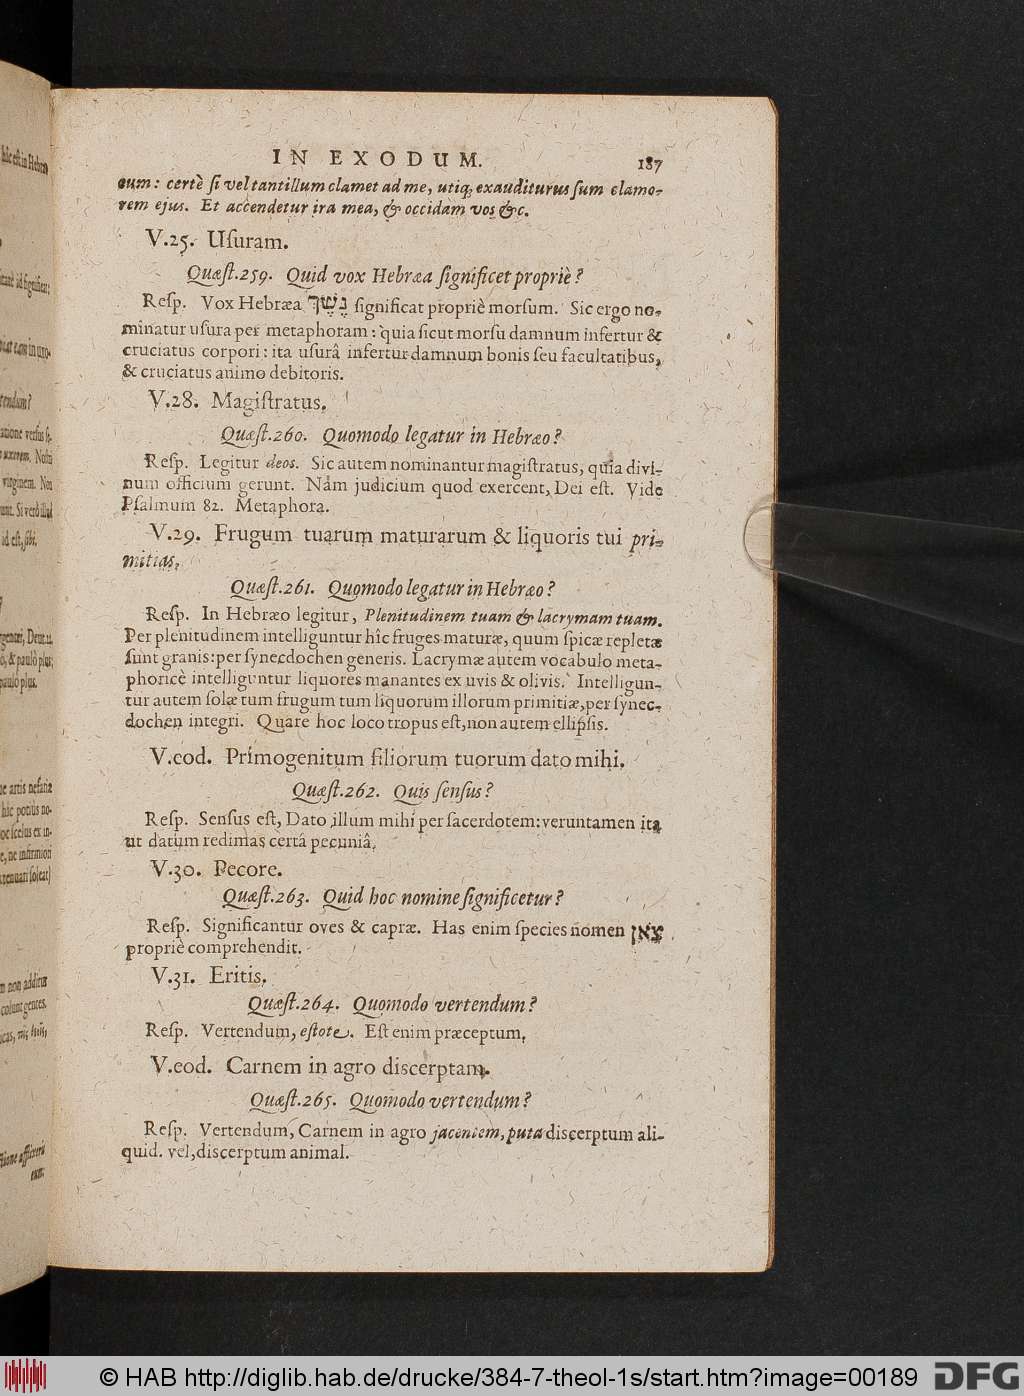 IN EXODUM. 187
eum: certè ſi vel tantillum clamet ad me, utiq; exauditurus ſum clamo-
rem ejus. Et accendetur ira mea, & occidam vos &c.
V.25. Uſuram.
Quæſt.259. Quid vox Hebræa ſignificet propriè?
Reſp. Vox Hebræa נֶשֶׁךְ ſignificat propriè morſum. Sic ergo no-
minatur uſura per metaphoram: quia ſicut morſu damnum infertur &
cruciatus corpori: ita uſurâ infertur damnum bonis ſeu facultatibus,
& cruciatus animo debitoris.
V.28. Magiſtratus.
Quæſt.260. Quomodo legatur in Hebræo?
Reſp. Legitur deos. Sic autem nominantur magiſtratus, quia divi-
num officium gerunt. Nam judicium quod exercent, Dei eſt. Vide
Pſalmum 82. Metaphora.
V.29. Frugum tuarum maturarum & liquoris tui pri-
mitias.
Quæſt.261. Quomodo legatur in Hebræo?
Reſp. In Hebræo legitur, Plenitudinem tuam & lacrymam tuam.
Per plenitudinem intelliguntur hîc fruges maturæ, quum ſpicæ repletæ
ſunt granis: per ſynecdochen generis. Lacrymæ autem vocabulo meta-
phoricè intelliguntur liquores manantes ex uvis & olivis. Intelligun-
tur autem ſolæ tum frugum tum liquorum illorum primitiæ, per ſynec-
dochen integri. Quare hoc loco tropus eſt, non autem ellipſis.
V.eod. Primogenitum filiorum tuorum dato mihi.
Quæſt.262. Quis ſenſus?
Reſp. Senſus eſt, Dato illum mihi per ſacerdotem: veruntamen ita
ut datum redimas certâ pecuniâ.
V.30. Pecore.
Quæſt.263. Quid hoc nomine ſignificetur?
Reſp. Significantur oves & capræ. Has enim ſpecies nomen צֹאן
propriè comprehendit.
V.31. Eritis.
Quæſt.264. Quomodo vertendum?
Reſp. Vertendum, eſtote. Eſt enim præceptum.
V.eod. Carnem in agro diſcerptam.
Quæſt.265. Quomodo vertendum?
Reſp. Vertendum, Carnem in agro jacentem, puta diſcerptum ali-
quid. vel, diſcerptum animal.
© HAB http://diglib.hab.de/drucke/384-7-theol-1s/start.htm?image=00189
DFG